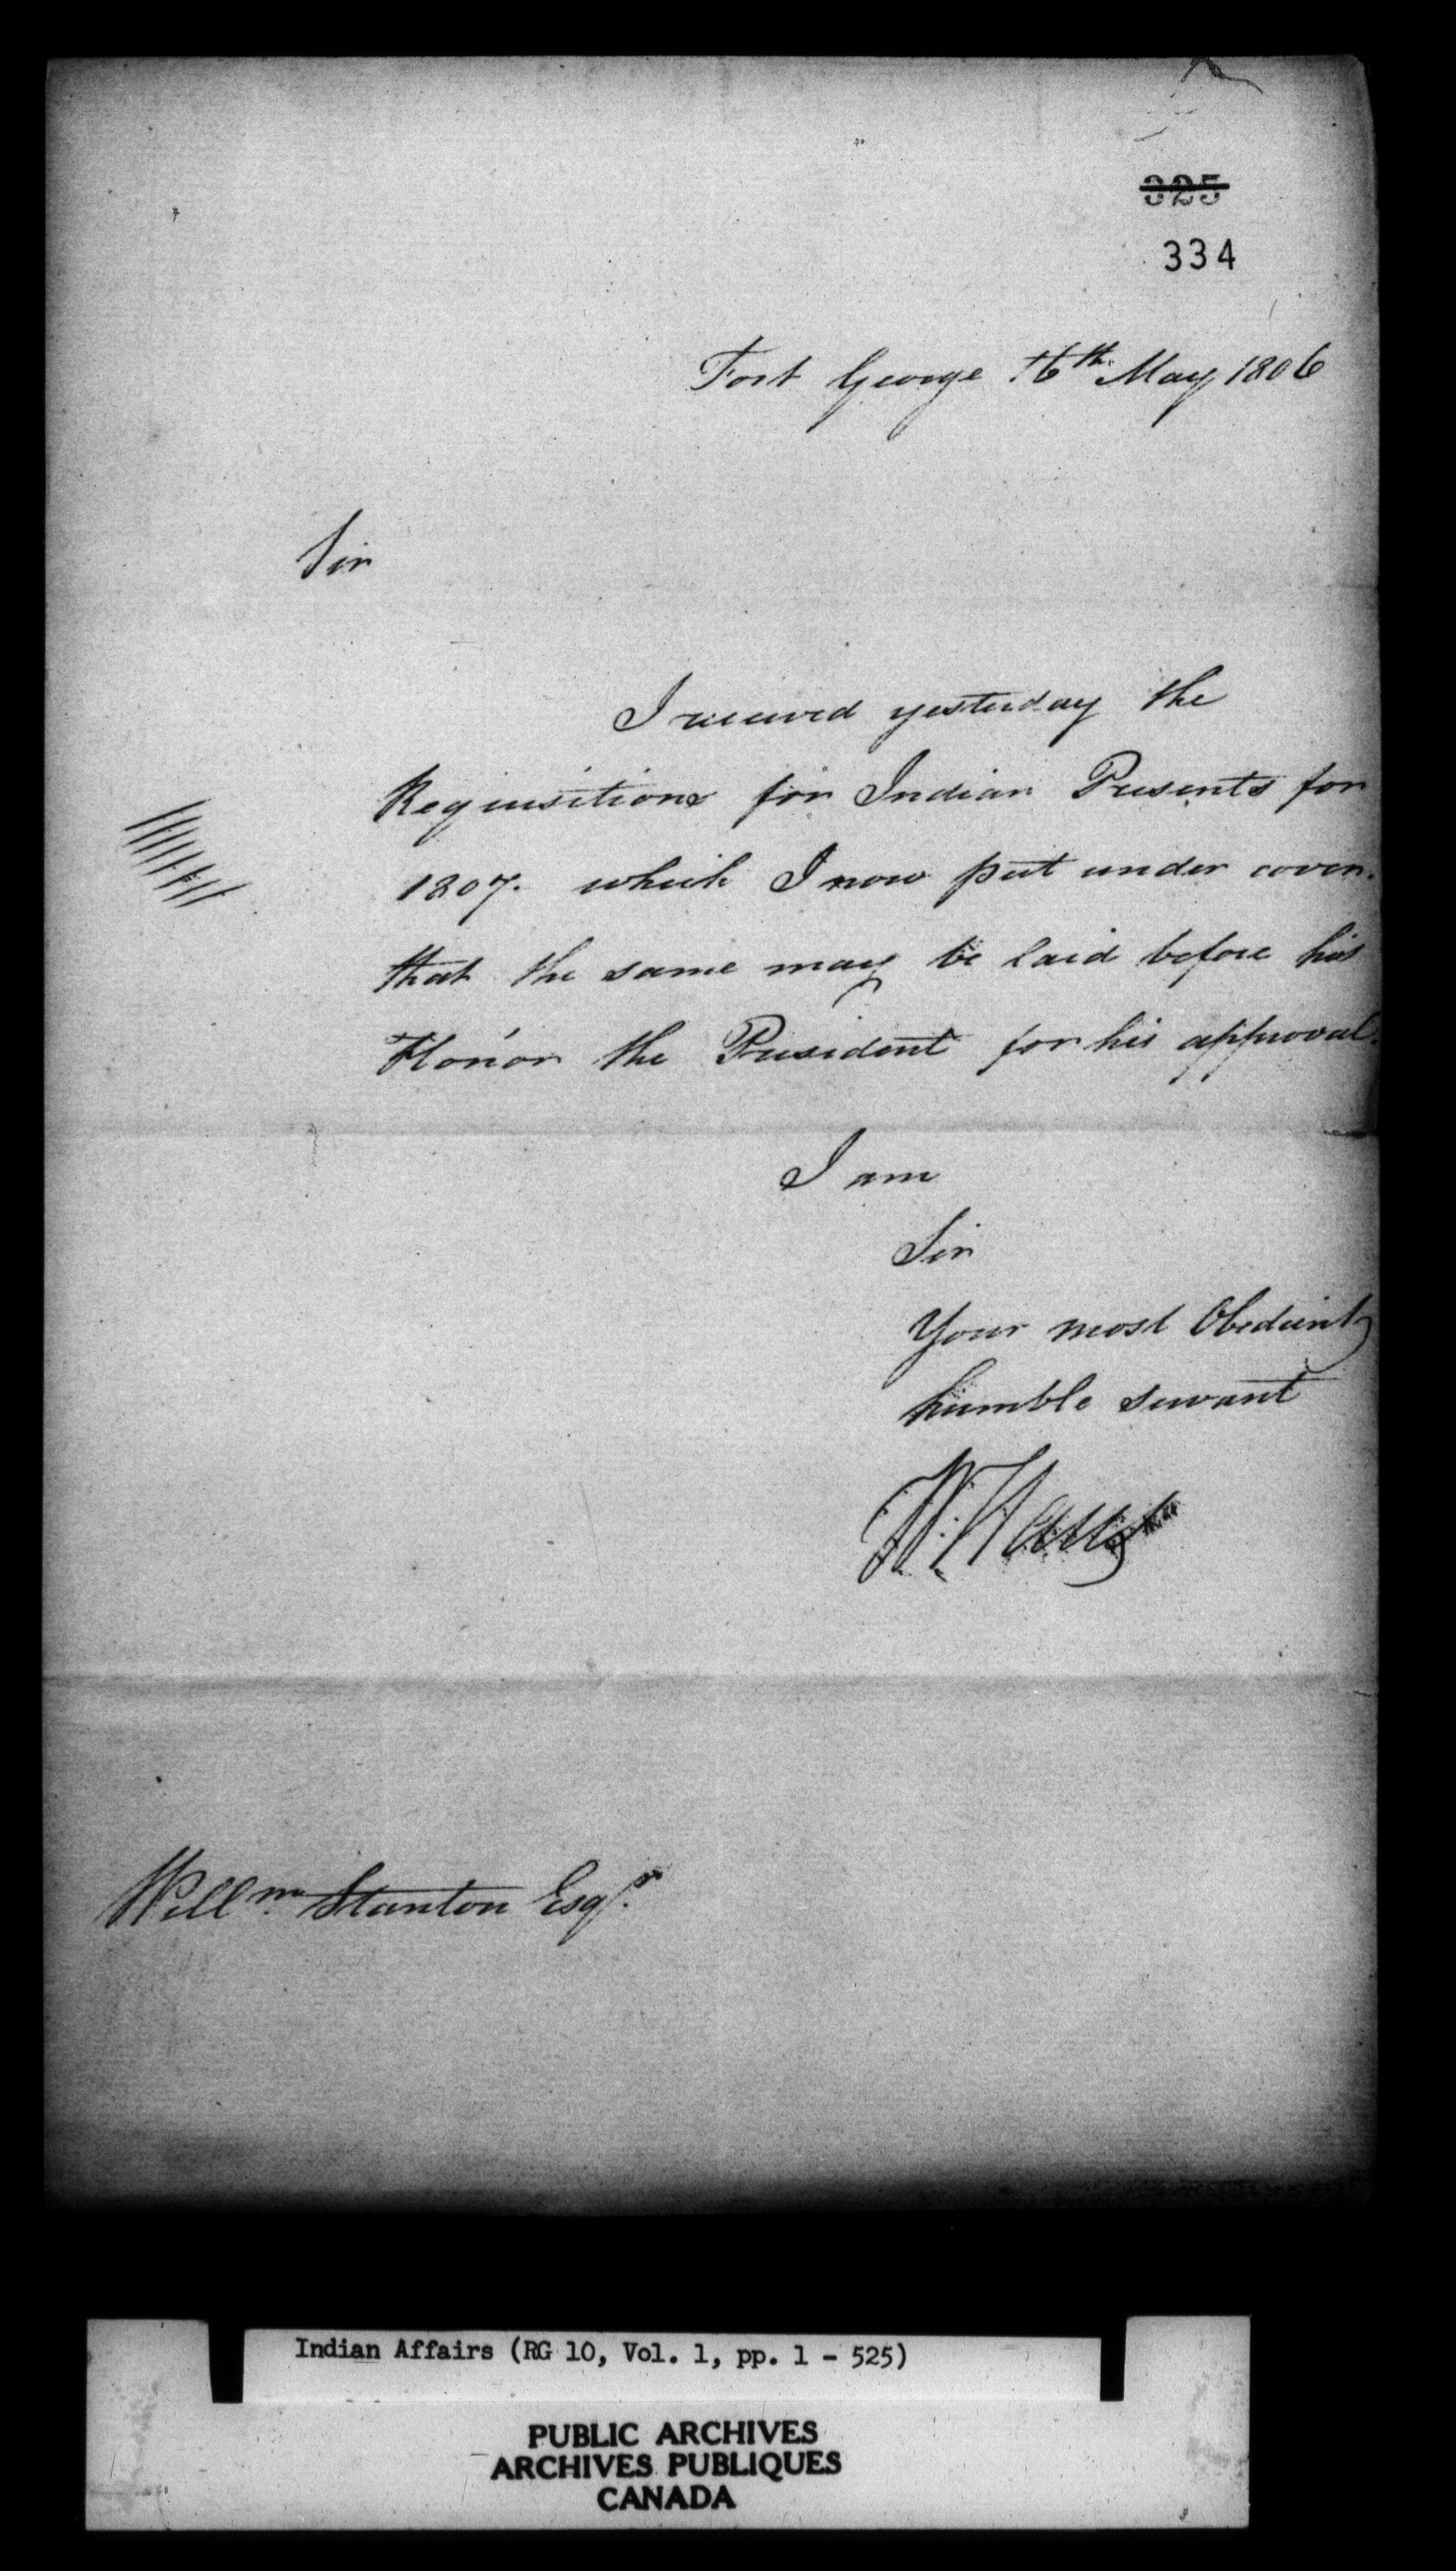 325
334
Fort George 16th May 1806
Sir
I received yesterday the
Requisitions for Indian Presents for
1807. which I now put under cover.
that the same may be laid before his
Honor the President for his approval.
I am
Sir
Your most Obedient
humble servant
W. Claus
Willm. Stanton Esqr.
Indian Affairs (RG 10, Vol. 1, pp. 1 - 525)
PUBLIC ARCHIVES
ARCHIVES PUBLIQUES
CANADA